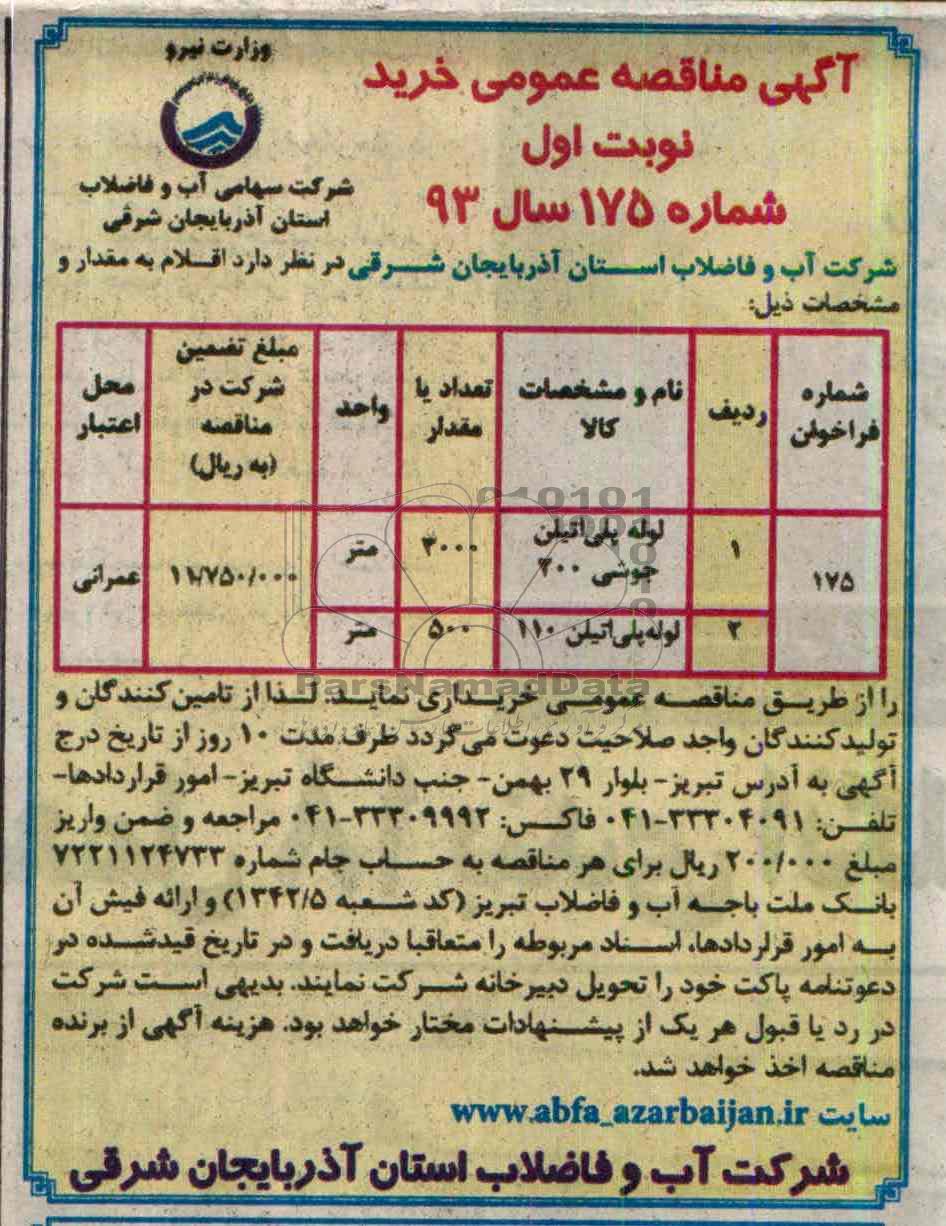 وزارت نیرو
شرکت سهامی آب و فاضلاب
استان آذربایجان شرقی
آگهی مناقصه عمومی خرید
نوبت اول
شماره ۱۷۵ سال ۹۳
شرکت آب و فاضلاب استان آذربایجان شرقی در نظر دارد اقلام به مقدار و
مشخصات ذیل:
شماره فراخوان | ردیف | نام و مشخصات کالا | تعداد یا مقدار | واحد | مبلغ تضمین شرکت در مناقصه (به ریال) | محل اعتبار
۱۷۵ | ۱ | لوله پلی‌اتیلن جوشی ۲۰۰ | ۳۰۰۰ | متر | ۱۱/۷۵۰/۰۰۰ | عمرانی
۲ | لوله‌پلی‌اتیلن ۱۱۰ | ۵۰۰ | متر
ParsNamadData
را از طریق مناقصه عمومی خریداری نماید. لذا از تامین‌کنندگان و
تولیدکنندگان واجد صلاحیت دعوت می‌گردد ظرف مدت ۱۰ روز از تاریخ درج
آگهی به آدرس تبریز- بلوار ۲۹ بهمن- جنب دانشگاه تبریز- امور قراردادها-
تلفن: ۰۴۱-۳۳۳۰۴۰۹۱ فاکس: ۰۴۱-۳۳۳۰۹۹۹۲ مراجعه و ضمن واریز
مبلغ ۲۰۰/۰۰۰ ریال برای هر مناقصه به حساب جام شماره ۷۲۲۱۱۲۴۷۳۳
بانک ملت باجه آب و فاضلاب تبریز (کد شعبه ۱۳۴۲/۵) و ارائه فیش آن
به امور قراردادها، اسناد مربوطه را متعاقبا دریافت و در تاریخ قیدشده در
دعوتنامه پاکت خود را تحویل دبیرخانه شرکت نمایند. بدیهی است شرکت
در رد یا قبول هر یک از پیشنهادات مختار خواهد بود. هزینه آگهی از برنده
مناقصه اخذ خواهد شد.
سایت www.abfa_azarbaijan.ir
شرکت آب و فاضلاب استان آذربایجان شرقی